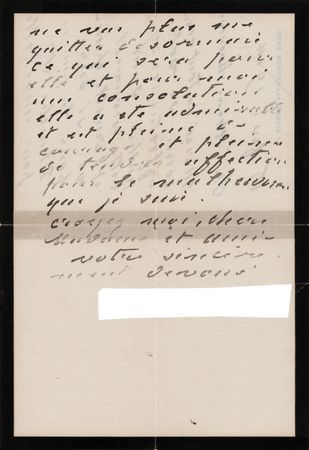 ne va plus me
quitter desormais
ce qui sera pour
elle et pour moi
une consolation
elle a été admirable
et est pleine de
courage et pleine
de tendre affection
pour le malheureux
que je suis.
croyez moi, chère
Madame et amie
votre sincère
ment dévoué